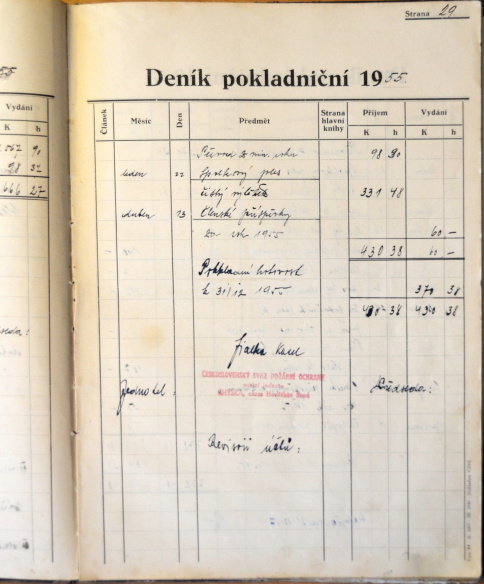 55
Vydání
K h
90
98 37
666 27
Strana 29
Deník pokladniční 1955
Článek Měsíc Den Předmět Strana hlavní knihy Příjem Vydání
K h K h
Převod z min. roku 98 90
leden 22 Spolkový ples
čistý výtěžek 331 48
duben 23 Členské příspěvky
za rok 1955 60 –
430 38 60 –
Pokladní hotovost
k 31/12 1955 370 38
430 38 430 38
Fialka Karel
ČESKOSLOVENSKÝ SVAZ POŽÁRNÍ OCHRANY
Jednatel: Předseda:
Revisoři účtů: